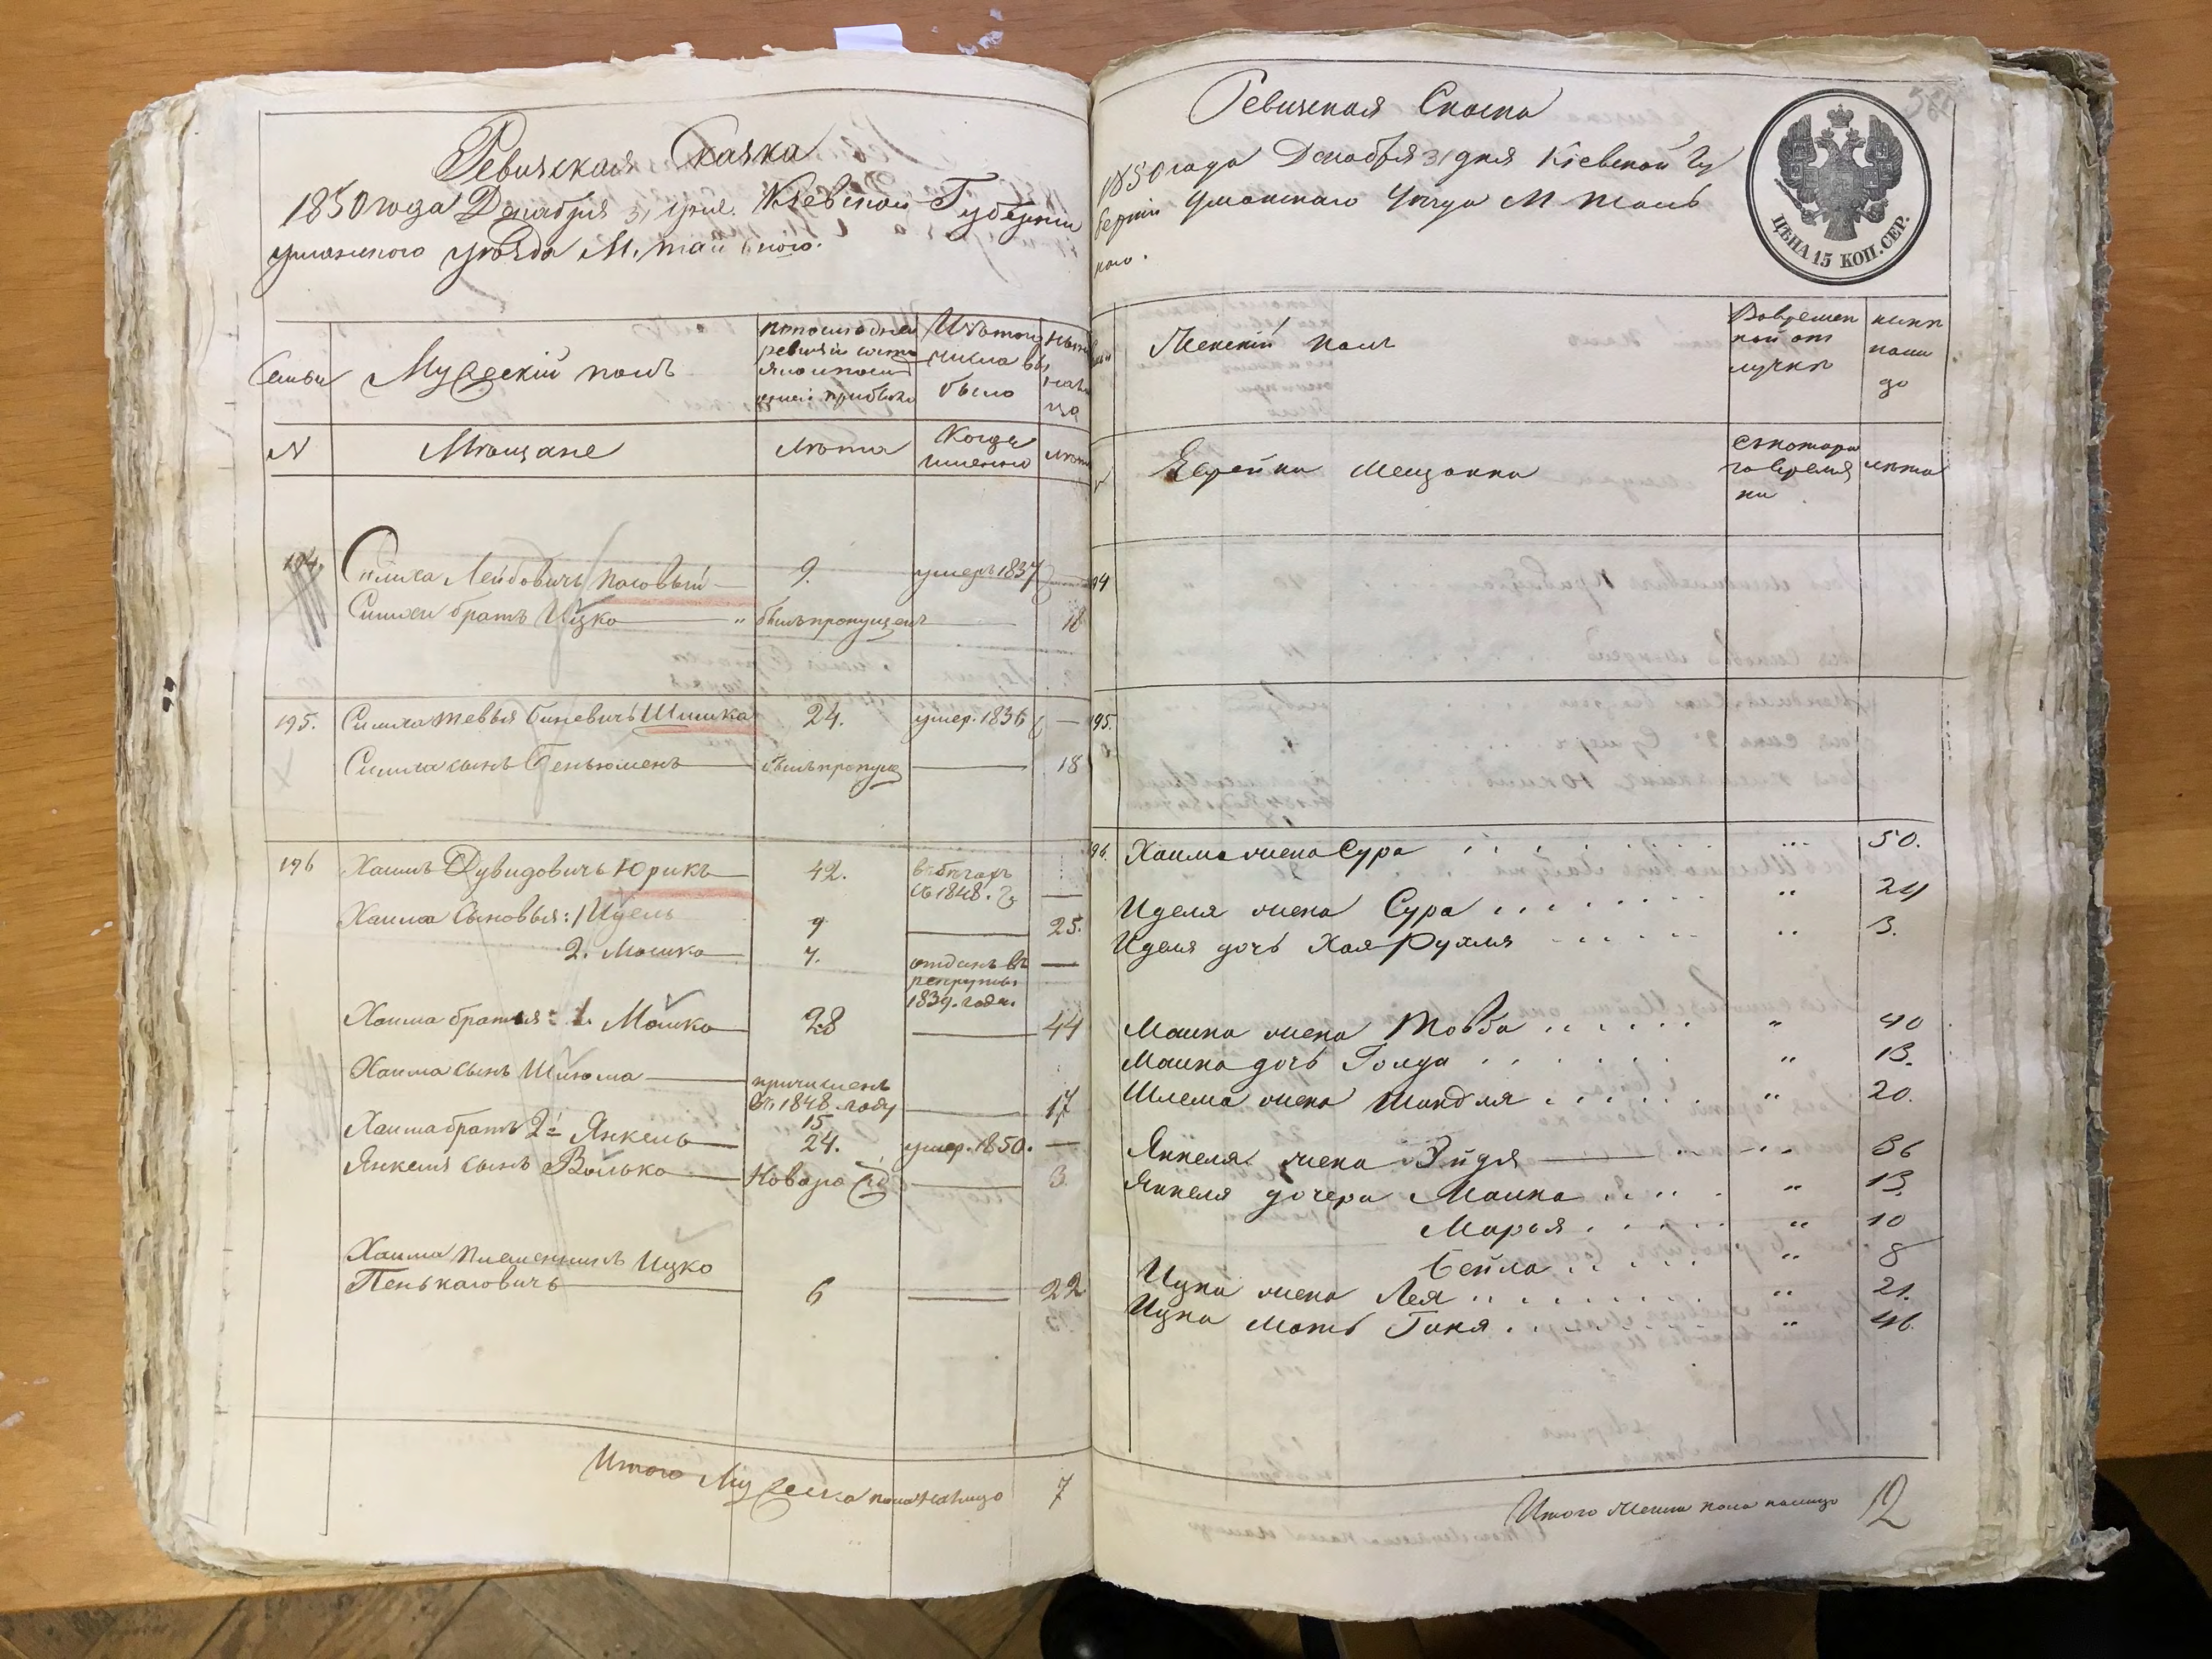 Ревизская Сказка
1850 года Декабря 31 дня. Кіевской Губерніи
уманского уѣзда М. тального.
Семьи
Мужескій полъ
По последней ревизіи состояло и после оной прибыло
Изъ того числа выбыло
Ныне на лицо
N
Мѣщане
Лѣта
Когда именно
Лѣта
194.
Симха Лейбовичъ Посовый
9.
умеръ 1837
Симхи братъ Ицко
былъ пропущенъ
18
195.
Симха тевья Биневичъ Шишка
24.
умер. 1836
—
Симха сынъ Беньюменъ
былъ пропущ
18
196
Хаимъ Дувидовичъ Юрикъ
42.
въ бегахъ
съ 1848. г.
—
Хаима Сыновья: 1 Идель
9
25.
2. Мошко
7.
отданъ въ
рекруты
1839. года.
—
Хаима братья: 1. Мошко
28
44
Хаима сынъ Шлюма
причисленъ
въ 1848 году
15
17
Хаима братъ 2й Янкель
24.
умер. 1850.
—
Янкеля сынъ Волько
Новорожд
3.
Хаима племенникъ Ицко
Пенькасовичъ
6
22
Итого Мужеска пола на лицо
7
Ревизская Сказка
1850 года Декабря 31 дня Кіевской Гу
берніи Уманскаго Уезда М Таль
наго.
Женскій полъ
Во времен
ной от
лучке
ныне
нали
до
N
Еврейки Мещанки
Съ котора
го время
ни
лета
94
95.
96.
Хаима жена Сура
50.
Иделя жена Сура
24
Иделя дочь Хая Рухля
3.
Мошка жена Товба
40
Мошка дочь Голда
13.
Шлема жена Шандля
20.
Янкеля жена Эйдя
36
Янкеля дочери Малка
13.
Марья
10
Бейла
8
Ицка жена Лея
21.
Ицка мать Гиня
46.
Итого Женска пола налицо
12
ЦѢНА 15 КОП. СЕР.